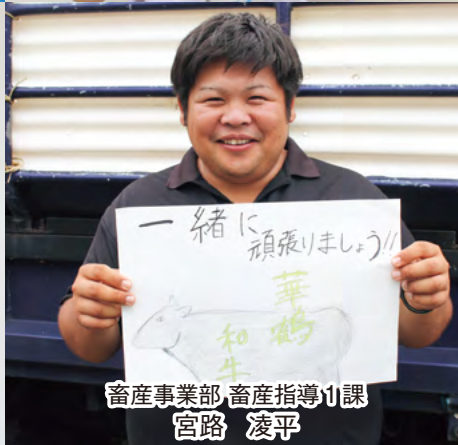 一緒に
頑張りましょう!!
華鶴
和牛
畜産事業部 畜産指導1課
宮路 凌平